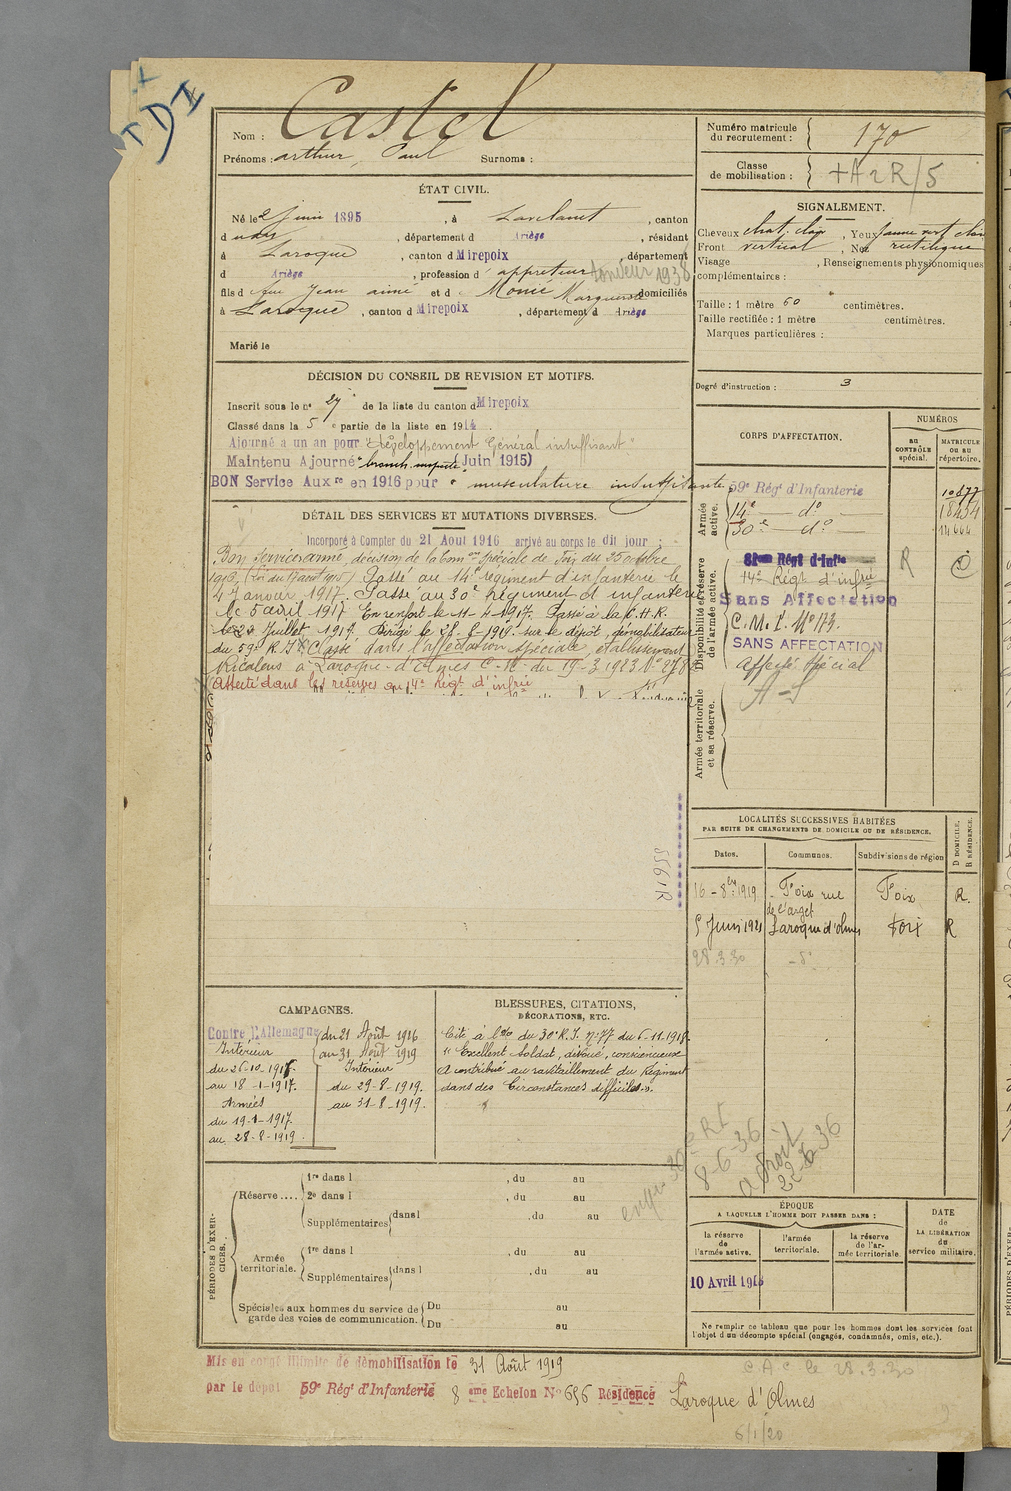 TDI
Nom : Castel
Prénoms : arthur, Paul Surnoms :
Numéro matricule du recrutement : 170
Classe de mobilisation :
ÉTAT CIVIL.
Né le 2 juin 1895, à Lavelanet, canton
d udit, département d Ariège, résidant
à Laroque, canton d Mirepoix, département
d Ariège, profession d appréteur tondeur 1938
fils d feu Jean aimé et d Monié Marguerite domiciliés
à Laroque, canton d Mirepoix, département d Ariège
Marié le
SIGNALEMENT.
Cheveux chat. clair, Yeux jaune vert clair
Front vertical, Nez rectiligne
Visage , Renseignements physionomiques
complémentaires :
Taille : 1 mètre 60 centimètres.
Taille rectifiée : 1 mètre centimètres.
Marques particulières :
Degré d'instruction : 3
DÉCISION DU CONSEIL DE REVISION ET MOTIFS.
Inscrit sous le n° 27 de la liste du canton d Mirepoix
Classé dans la 5 e partie de la liste en 1914.
Ajourné a un an pour "développement Général insuffisant"
Maintenu Ajourné (Juin 1915)
BON Service Aux re en 1916 pour "musculature insuffisante"
DÉTAIL DES SERVICES ET MUTATIONS DIVERSES.
Incorporé à Compter du 21 Aout 1916 arrivé au corps le dit jour ;
Bon Service armé, décision de la Com on Spéciale de Foix du 25 octobre
1916, (Loi du 17 aout 1915) Passé au 14e régiment d'infanterie le
4 Janvier 1917. Passé au 30e Régiment d'infanterie
le 5 avril 1917 En renfort le 11-4-1917. Passé à la C.H.R.
le 23 Juillet 1917. Dirigé le 28-8-1919 sur le dépôt démobilisateur
du 59e R.I. Classé dans l'affectation spéciale, établissement
Ricalens à Laroque-d'Olmes C-N du 19-3 1923 N°
affecté dans les réserves au 14e Régt d'infrie
5561R
CORPS D'AFFECTATION.
NUMÉROS
au CONTRÔLE spécial.
MATRICULE OU AU répertoire.
Armée active.
59e Rég t d'Infanterie 10877
14e — do — 18454
30e — do — 14664
Disponibilité et réserve de l'armée active.
14e Régt d'infrie R
Sans Affectation
SANS AFFECTATION
affecté Spécial
Armée territoriale et sa réserve.
A-S
LOCALITÉS SUCCESSIVES HABITÉES
PAR SUITE DE CHANGEMENTS DE DOMICILE OU DE RÉSIDENCE.
D DOMICILE, R RÉSIDENCE.
Dates. Communes. Subdivisions de région
16-8bre 1919 Foix rue de l'arget Foix R.
5 Juin 1921 Laroque d'olmes Foix R
28.3.30 -do-
CAMPAGNES.
Contre l'Allemagne du 21 Août 1916
au 31 Août 1919
Intérieur
du 26-10-1916.
au 18-1-1917.
Armées
du 19-1-1917.
au 28-8-1919.
Intérieur
du 29-8-1919.
au 31-8-1919.
BLESSURES, CITATIONS,
DÉCORATIONS, ETC.
Cité à l'ordre du 30e R.I. n: 77 du 6-11-1918.
"Excellent Soldat, dévoué, consciencieux
A contribué au ravitaillement du Régiment
dans des Circonstances difficiles".
8-6-36
22-6-36
PÉRIODES D'EXERCICES.
Réserve ....
1re dans l , du au
2e dans l , du au
Supplémentaires dans l , du au
Armée territoriale.
1re dans l , du au
Supplémentaires dans l , du au
Spéciales aux hommes du service de garde des voies de communication.
Du au
Du au
ÉPOQUE
A LAQUELLE L'HOMME DOIT PASSER DANS :
la réserve de l'armée active.
l'armée territoriale.
la réserve de l'armée territoriale.
DATE de LA LIBÉRATION du service militaire.
10 Avril 1918
Ne remplir ce tableau que pour les hommes dont les services font
l'objet d'un décompte spécial (engagés, condamnés, omis, etc.).
Mis en congé illimité de démobilisation le 31 Août 1919
par le dépot 59e Régt d'Infanterie 8 ème Echelon No 656 Résidence Laroque d'Olmes
C A C le 28.3.30
6/1/20